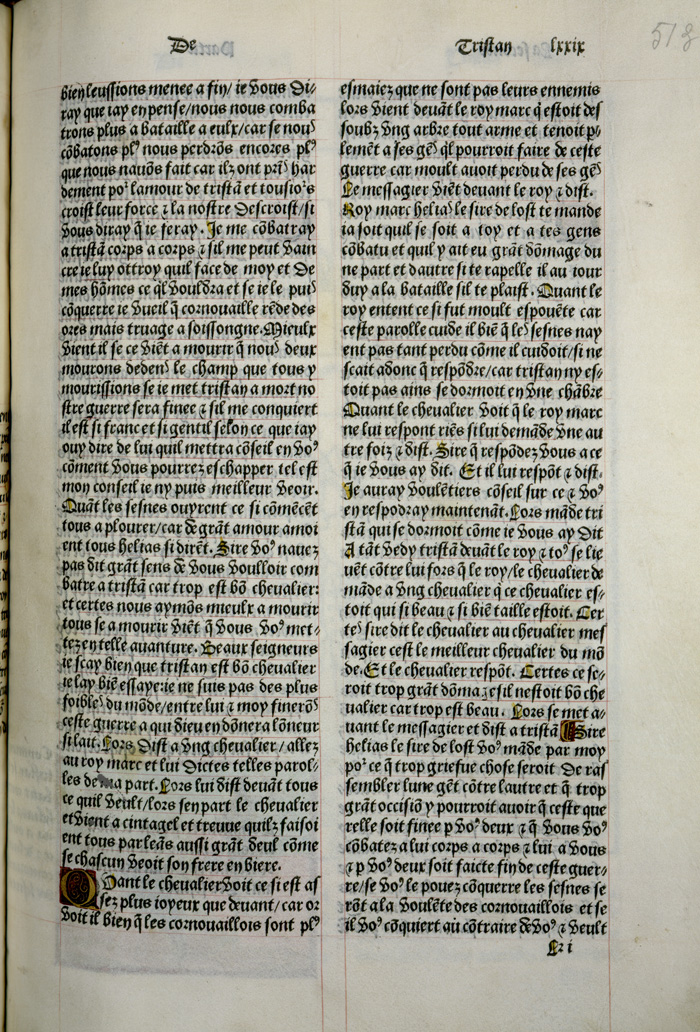 De
Tristan lxxix
518
bien leussions menee a fin/ ie vous di/
ray que iay en pense/nous nous comba
trons plus a bataille a eulx/car se nouꝰ
cõbatons plꝰ nous perdrõs encores plꝰ
que nous nauõs fait car ilz ont prĩꝰ har
dement poꝛ lamour de tristã et tousioꝛs
croist leur force ⁊ la nostre descroist/si
vous diray q̃ ie feray. Je me cõbatray
a tristã corps a corps ⁊ sil me peut vain
cre ie luy ottroy quil face de moy et de
mes hõmes ce q̃l vouldra et se ie le puiꝰ
cõquerre ie vueil q̃ cornouaille rẽde des
ores mais truage a soissongne. Mieulx
vient il se ce viẽt a mourir q̃ nouꝰ deux
mourons dedenꝰ le champ que tous y
mourissions se ie met tristan a mort no
stre guerre sera finee ⁊ sil me conquiert
il est si franc et si gentil selon ce que iay
ouy dire de lui quil mettra cõseil en voꝰ
cõment vous pourrez eschapper tel est
mon conseil ie ny puis meilleur veoir.
Quãt les sesnes ouyrent ce si cõmẽcẽt
tous a plourer/car de grãt amour amoi
ent tous helias si dirẽt. Sire voꝰ nauez
pas dit grãt sens de vous vouloir com
batre a tristã car trop est bõ chevalier:
et certes nous aymõs mieulx a mourir
tous se a mourir viẽt q̃ vous voꝰ met⸗
tez en telle auanture. Beaux seigneurs
ie scay bien que tristan est bõ chevalier
ie lay biẽ essaye:ie ne suis pas des plus
foibleꝰ du mõde/entre lui ⁊ moy fineroꝰ
ceste guerre a qui dieu en dõnera lõneur
si lait. Lors dist a vng chevalier/allez
au roy marc et lui dictes telles parol⸗
les de ma part. Lors lui dist deuãt tous
ce quil veult/lors sen part le chevalier
et vient a cintagel et treuue quilz faisoi
ent tous par leãs aussi grãt deul cõme
se chascun veoit son frere en biere.
Quant le chevalier voit ce si est as
sez plus ioyeux que deuant/car or
voit il bien q̃ les cornouaillois sont plꝰ
esmaiez que ne sont pas leurs ennemis
lors vient deuãt le roy marc q̃ estoit des
soubz vng arbre tout arme et tenoit p̲⸗
lemẽt a ses gẽꝰ q̃l pourroit faire de ceste
guerre car moult auoit perdu de ses gẽꝰ
Le messagier viẽt deuant le roy ⁊ dist.
Roy marc heliaꝰ le sire de lost te mande
ia soit quil se soit a toy et a tes gens
cõbatu et quil y ait eu grãt dõmage du
ne part et dautre si te rapelle il au iour
duy a la bataille sil te plaist. Quant le
roy entent ce si fut moult espouẽte car
ceste parolle cuide il biẽ q̃ leꝰ sesnes nay
ent pas tant perdu cõme il cuidoit/si ne
scait adonc q̃ respõdre/car tristan ny es⸗
toit pas ains se dormoit en vne chãbre
Quant le chevalier voit q̃ le roy marc
ne lui respont riẽs si lui demãde vne au
tre foiz ⁊ dist. Sire q̃ respõdez vous a ce
q̃ ie vous ay dit. Et il lui respõt ⁊ dist.
Je auray voulẽtiers cõseil sur ce ⁊ voꝰ
en respodray maintenãt. Lors mãde tri
stã qui se dormoit cõme ie vous ay dit
A tãt vedy tristã deuãt le roy ⁊ toꝰ se lie
uẽt cõtre lui fors q̃ le roy/le chevalier de
mãde a vng chevalier q̃ ce chevalier es⸗
toit qui si beau ⁊ si biẽ taille estoit. Cer
teꝰ sire dit le chevalier au chevalier mes
sagier cest le meilleur chevalier du mõ
de. Et le chevalier respõt. Certes ce se⸗
roit trop grãt dõmaige sil nestoit bõ che
ualier car trop est beau. Lors se met a⸗
uant le messagier et dist a tristã Sire
helias le sire de lost voꝰ mãde par moy
poꝛ ce q̃ trop griefue chose seroit de ras
sembler lune gẽt cõtre lautre et q̃ trop
grãt occisiõ y pourroit auoir q̃ ceste que
relle soit finee p̲ voꝰ deux ⁊ q̃ vous voꝰ
cõbatez a lui corps a corps ⁊ lui a vous
⁊ p̲ voꝰ deux soit faicte fin de ceste guer⸗
re/se voꝰ le pouez cõquerre les sesnes se
rõt a la voulẽte des cornouaillois et se
il voꝰ cõquiert au cõtraire de voꝰ ⁊ veult